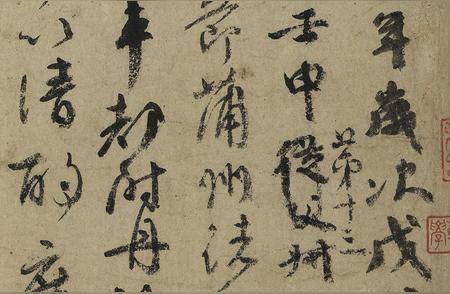 年歲次戊
壬申第十三從父叔
節蒲州諸
車都尉丹
以清酌庶